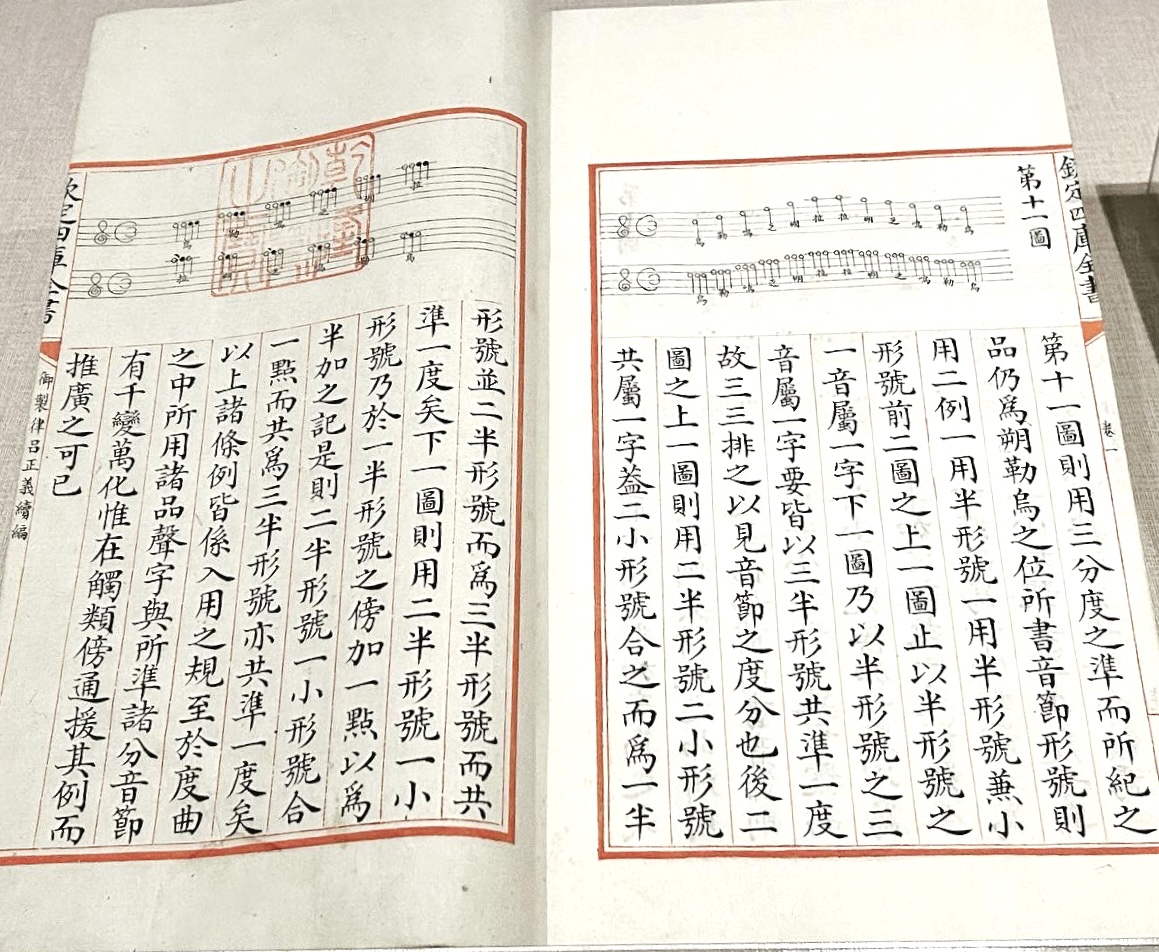 欽定四庫全書
卷一
第十一圖
第十一圖則用三分度之準而所紀之
品仍為朔勒烏之位所書音節形號則
用二例一用半形號一用半形號兼小
形號前二圖之上一圖止以半形號之
一音屬一字下一圖乃以半形號之三
音屬一字要皆以三半形號共準一度
故三三排之以見音節之度分也後二
圖之上一圖則用二半形號二小形號
共屬一字葢二小形號合之而為一半
形號並二半形號而為三半形號而共
準一度矣下一圖則用二半形號一小
形號乃於一半形號之傍加一點以為
半加之記是則二半形號一小形號合
一點而共為三半形號亦共準一度矣
以上諸條例皆係入用之規至於度曲
之中所用諸品聲字與所準諸分音節
有千變萬化惟在觸類傍通援其例而
推廣之可已
欽定四庫全書
御製律呂正義續編